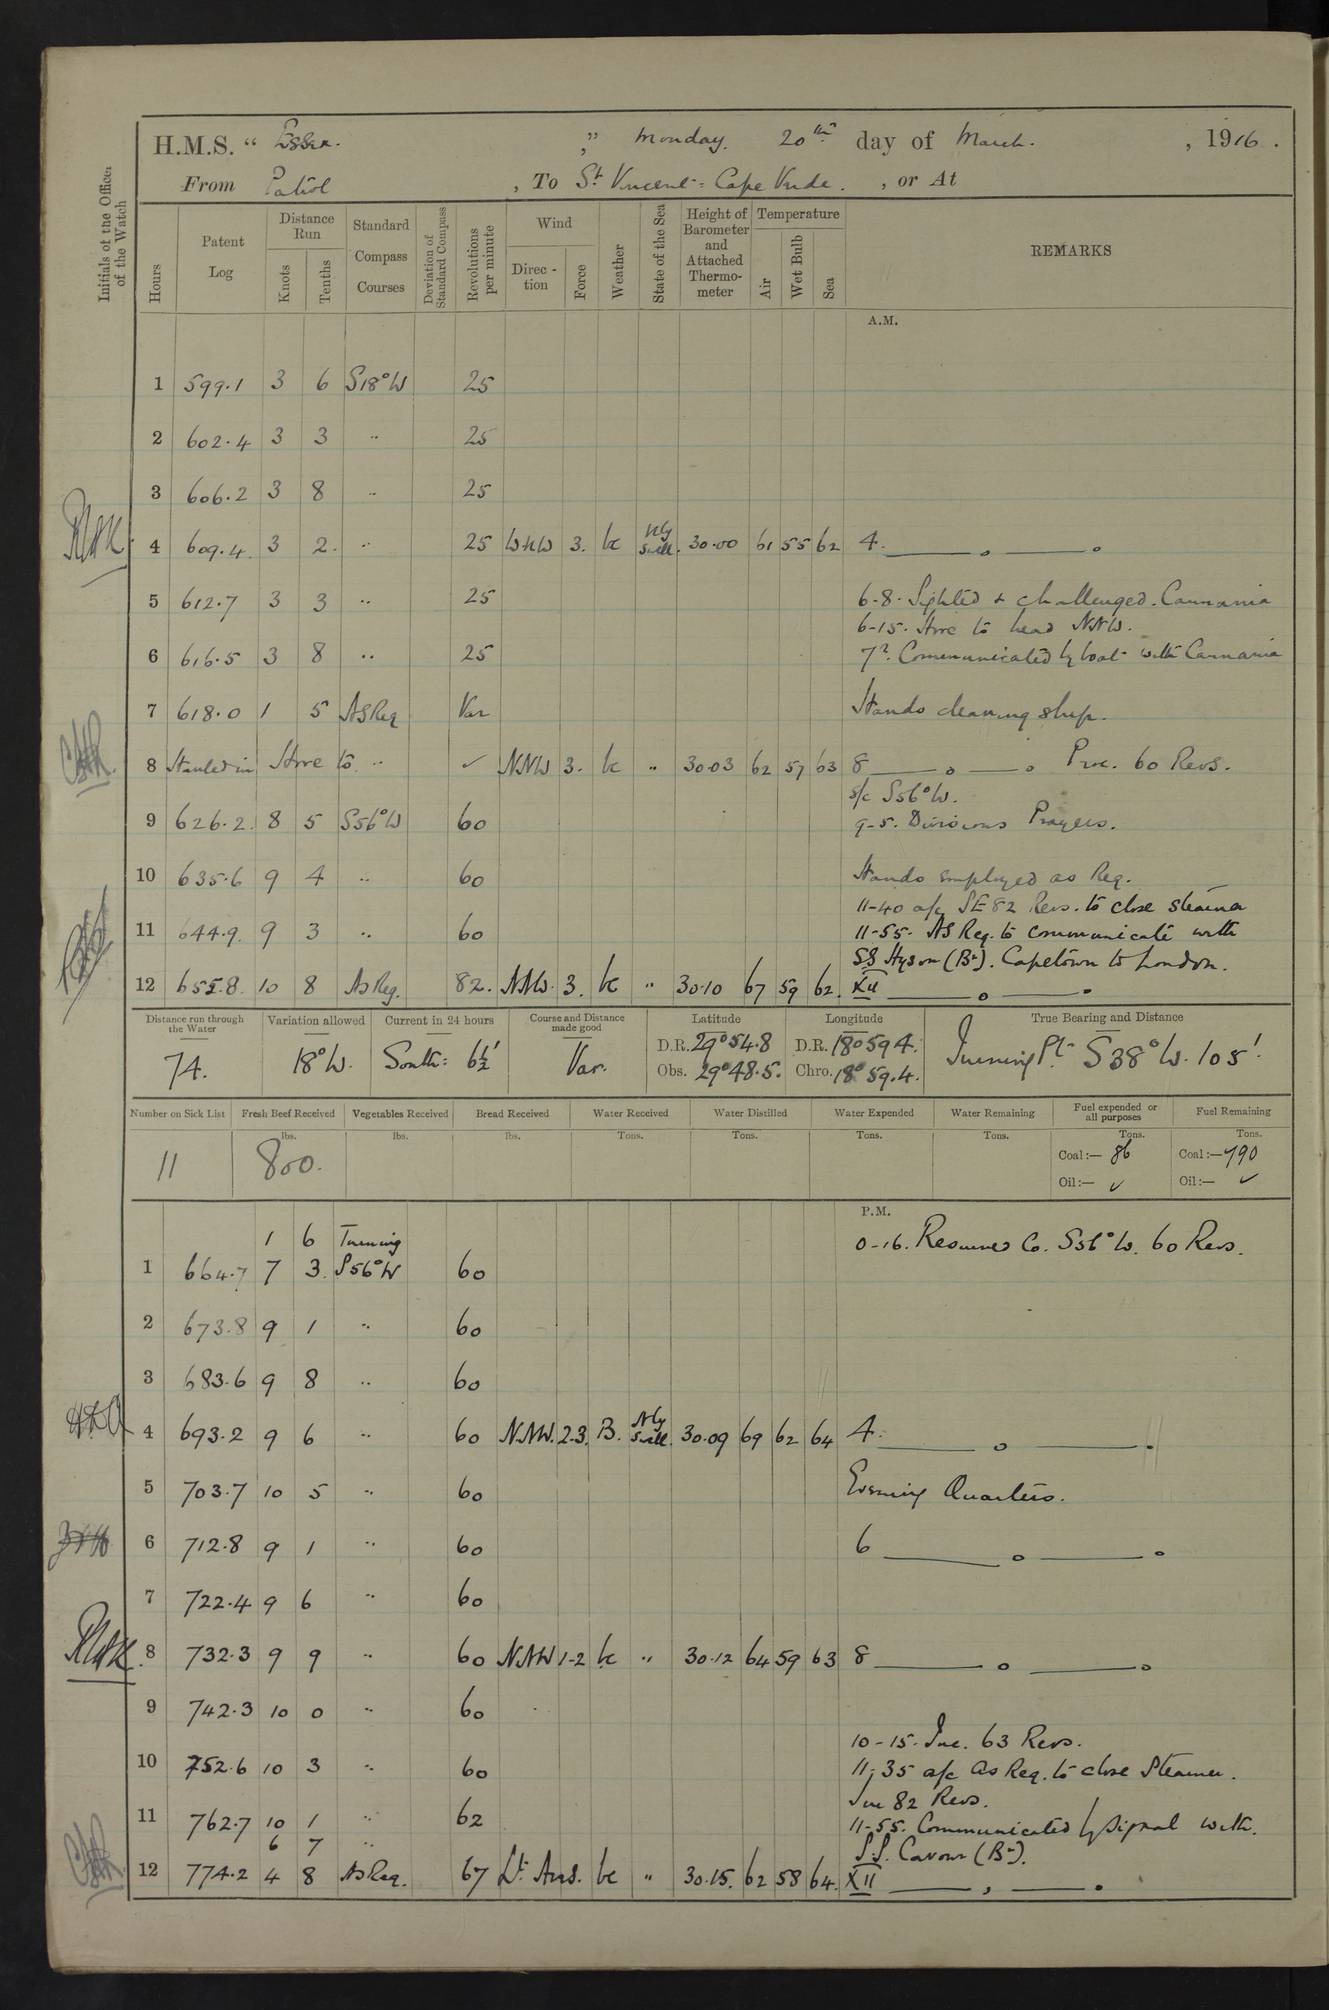 H.M.S. "Essex." Monday. 20th day of March. , 1916.
From Patrol , To St Vincent: Cape Verde. , or At
Initials of the Officer of the Watch
Hours
Patent Log
Distance Run
Knots
Tenths
Standard Compass Courses
Deviation of Standard Compass
Revolutions per minute
Wind
Direc-tion
Force
Weather
State of the Sea
Height of Barometer and Attached Thermo-meter
Temperature
Air
Wet Bulb
Sea
REMARKS
A.M.
1 599.1 3 6 S18°W 25
2 602.4 3 3 " 25
3 606.2 3 8 " 25
4 609.4 3 2. " 25 WNW 3. bc Nly Swell. 30.00 61 55 62 4.
5 612.7 3 3 " 25 6-8. Sighted & challenged. Carmania
6-15. Hove to head NNW.
6 616.5 3 8 " 25 7?. Communicated by boat with Carmania
7 618.0 1 5 AsReq Var Hands cleaning ship.
8 Hauled in Hove to. " ✓ NNW 3. bc " 30.03 62 57 63 8 Proc. 60 Revs.
s/c S56°W.
9 626.2. 8 5 S56°W 60 9-5. Divisions Prayers.
10 635.6 9 4 " 60 Hands employed as Req.
11-40 a/c SE 82 Revs. to close steamer
11 644.9. 9 3 " 60 11-55. AS Req. to communicate with
SS Hyson (Br). Capetown to London.
12 655.8. 10 8 AsReq. 82. NNW. 3. bc " 30.10 67 59 62. XII
Distance run through the Water
74.
Variation allowed
18°W.
Current in 24 hours
South: 6½'
Course and Distance made good
Var.
Latitude
D.R. 29°54.8
Obs. 29°48.5.
Longitude
D.R. 18°59.4.
Chro. 18°59.4.
True Bearing and Distance
Turning Pt. S38°W. 105'.
Number on Sick List
11
Fresh Beef Received
lbs.
800.
Vegetables Received
lbs.
Bread Received
lbs.
Water Received
Tons.
Water Distilled
Tons.
Water Expended
Tons.
Water Remaining
Tons.
Fuel expended or all purposes
Tons.
Coal:— 86
Oil:— ✓
Fuel Remaining
Tons.
Coal:— 790
Oil:— ✓
P.M.
1 6 Turning 0-16. Resumed Co. S56°W. 60 Revs.
1 664.7 7 3. S56°W 60
2 673.8 9 1 " 60
3 683.6 9 8 " 60
4 693.2 9 6 " 60 NNW. 2.3. B. Nly Swell. 30.09 69 62 64 4.
5 703.7 10 5 " 60 Evening Quarters.
6 712.8 9 1 " 60 6
7 722.4 9 6 " 60
8 732.3 9 9 " 60 NNW 1-2 bc " 30.12 64 59 63 8
9 742.3 10 0 " 60
10-15. Inc. 63 Revs.
10 752.6 10 3 " 60 11-35 a/c as Req. to close Steamer.
Inc 82 Revs.
11 762.7 10 1 " 62 11-55. Communicated by signal with.
6 7 " S.S. Cavour (Br).
12 774.2 4 8 AsReq. 67 Lt. Airs. bc " 30.15. 62 58 64. XII